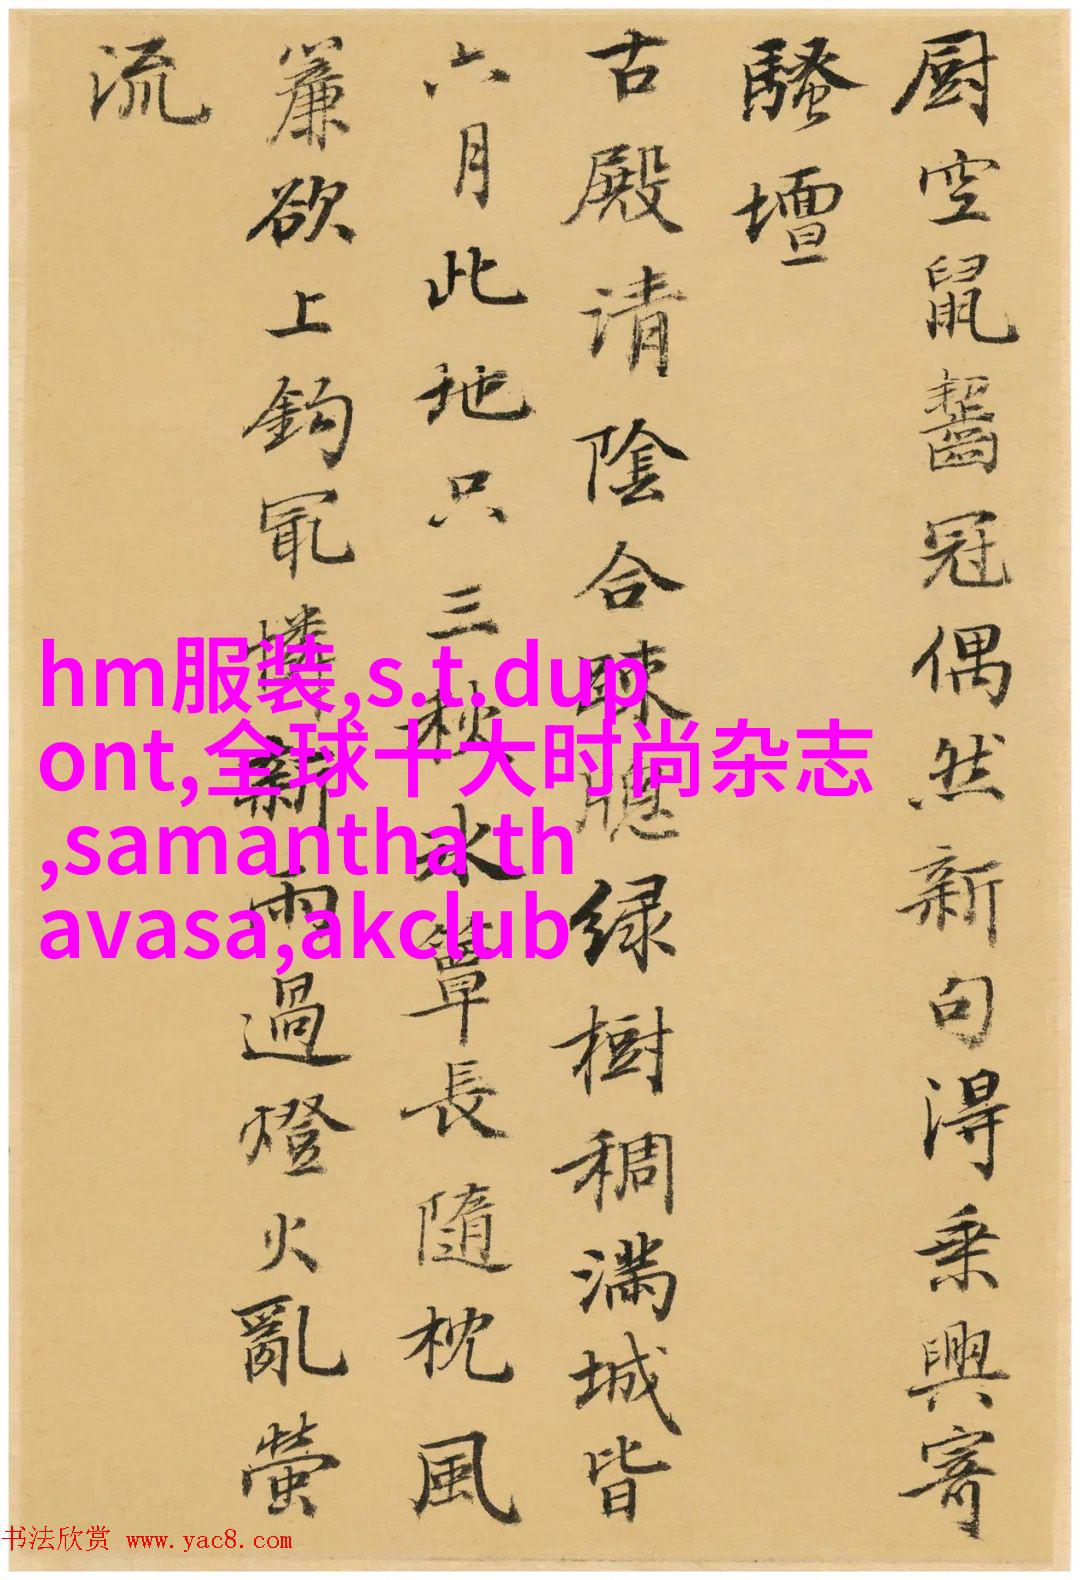 厨空鼠齧冠偶然新句得乗興寄
騷壇
古殿请陰合踈牎绿樹稠满城皆
六月此地只三秋冰簟長隨枕風
簾欲上鈎最憐新雨過燈火亂螢
流
hm服装,s.t.dup
ont,全球十大时尚杂志
,samantha th
avasa,akclub
书法欣赏 www.yac8.com